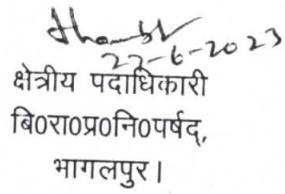 22-6-2023
क्षेत्रीय पदाधिकारी
बि0रा0प्र0नि0पर्षद,
भागलपुर।